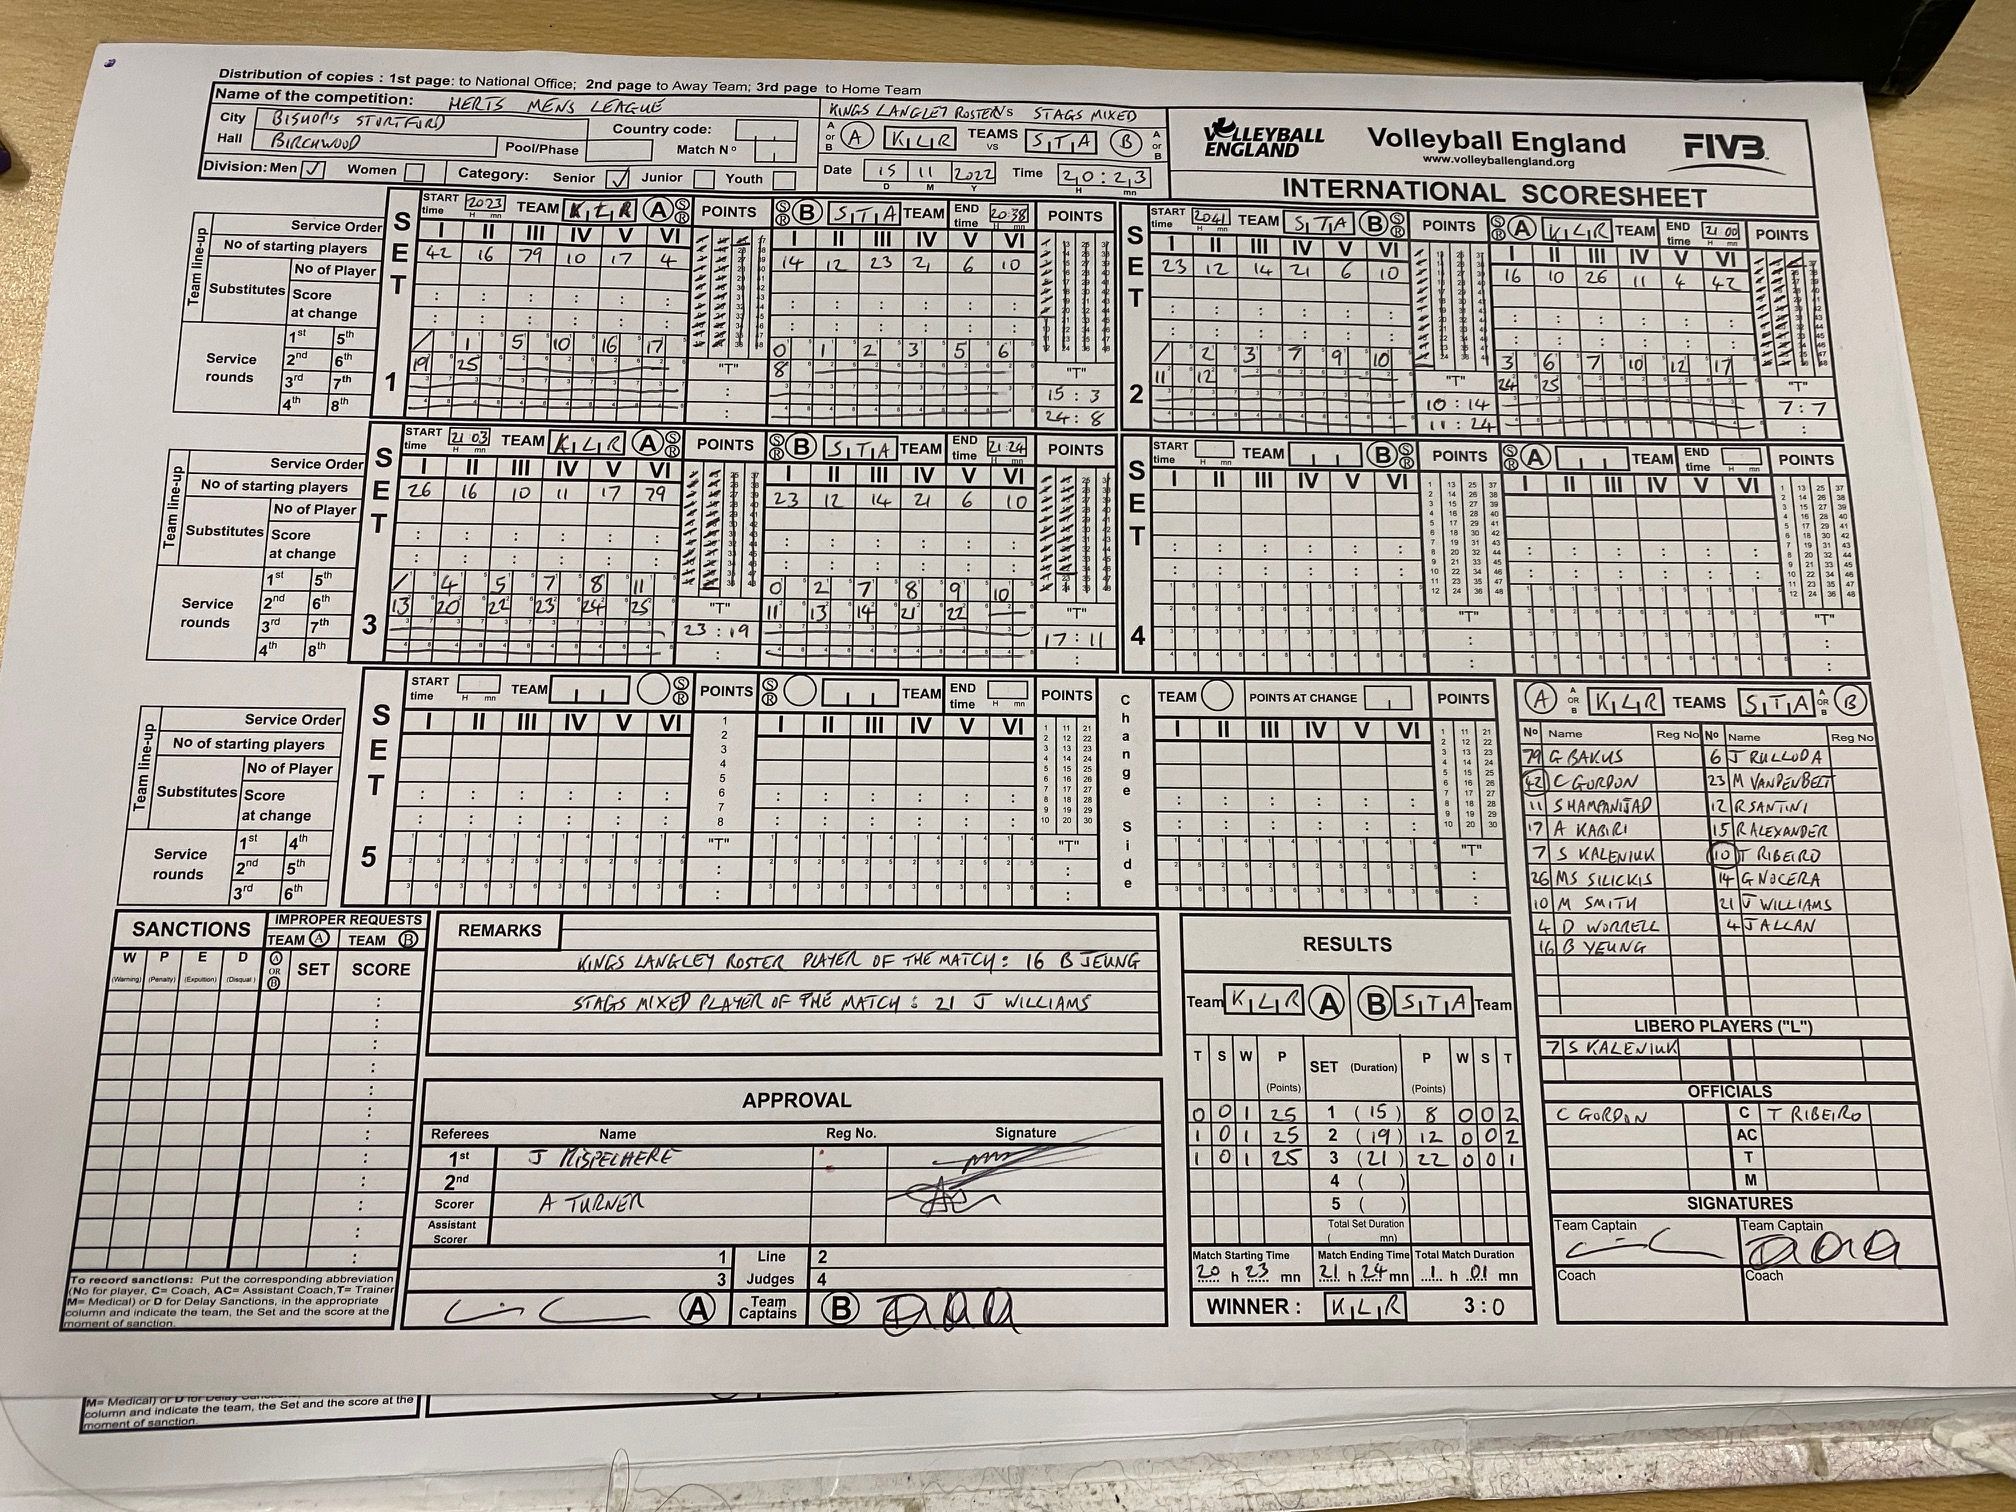 Distribution of copies : 1st page: to National Office; 2nd page to Away Team; 3rd page to Home Team
Name of the competition: HERTS MENS LEAGUE
KINGS LANGLEY ROSTERS STAGS MIXED
City BISHOP'S STORTFORD
Country code:
Hall BIRCHWOOD
Pool/Phase
Match Nº
A or B A KLR TEAMS vs STA B A or B
Division: Men ✓ Women Category: Senior ✓ Junior Youth
Date 15 11 2022 Time 20:23
D M Y H mn
VOLLEYBALL ENGLAND
Volleyball England
www.volleyballengland.org
FIVB
INTERNATIONAL SCORESHEET
Team line-up
Service Order
No of starting players
Substitutes
No of Player
Score at change
Service rounds
1st 5th
2nd 6th
3rd 7th
4th 8th
SET 1
START time 2023 TEAM KLR A S R POINTS
I II III IV V VI
42 16 79 10 17 4
/ 1 5 10 16 17
19 25
"T"
S R B STA TEAM END time 20:38 POINTS
I II III IV V VI
14 12 23 21 6 10
0 1 2 3 5 6
8
"T"
15 : 3
24 : 8
SET 2
START time 2041 TEAM STA B S R POINTS
I II III IV V VI
23 12 14 21 6 10
/ 2 3 7 9 10
11 12
"T"
10 : 14
11 : 24
S R A KLR TEAM END time 21 00 POINTS
I II III IV V VI
16 10 26 11 4 42
3 6 7 10 12 17
24 25
"T"
7 : 7
Team line-up
Service Order
No of starting players
Substitutes
No of Player
Score at change
Service rounds
1st 5th
2nd 6th
3rd 7th
4th 8th
SET 3
START time 21 03 TEAM KLR A S R POINTS
I II III IV V VI
26 16 10 11 17 79
/ 4 5 7 8 11
13 20 22 23 24 25
"T"
23 : 19
S R B STA TEAM END time 21:24 POINTS
I II III IV V VI
23 12 14 21 6 10
0 2 7 8 9 10
11 13 14 21 22
"T"
17 : 11
SET 4
START time TEAM B S R POINTS
I II III IV V VI
"T"
S R A TEAM END time POINTS
I II III IV V VI
"T"
Team line-up
Service Order
No of starting players
Substitutes
No of Player
Score at change
Service rounds
1st 4th
2nd 5th
3rd 6th
SET 5
START time TEAM S R POINTS
I II III IV V VI
1
2
3
4
5
6
7
8
"T"
S R TEAM END time POINTS
I II III IV V VI
"T"
Change Side
TEAM POINTS AT CHANGE POINTS
I II III IV V VI
"T"
A A OR B KLR TEAMS STA A OR B B
Nº Name Reg No Nº Name Reg No
79 G BAKUS 6 J RULLODA
42 C GORDON 23 M VANDENBELT
11 S HAMPANIJAD 12 R SANTINI
17 A KABIRI 15 R ALEXANDER
7 S KALENIUK 10 T RIBEIRO
26 MS SILICKIS 14 G NOCERA
10 M SMITH 21 J WILLIAMS
4 D WORRELL 4 J ALLAN
16 B YEUNG
LIBERO PLAYERS ("L")
7 S KALENIUK
OFFICIALS
C GORDON C T RIBEIRO
AC
T
M
SIGNATURES
Team Captain Team Captain
Coach Coach
SANCTIONS
IMPROPER REQUESTS
TEAM A TEAM B
W P E D A OR B SET SCORE
(Warning) (Penalty) (Expulsion) (Disqual.)
To record sanctions: Put the corresponding abbreviation
(No for player, C= Coach, AC= Assistant Coach,T= Trainer
M= Medical) or D for Delay Sanctions, in the appropriate
column and indicate the team, the Set and the score at the
moment of sanction.
REMARKS
KINGS LANGLEY ROSTER PLAYER OF THE MATCH : 16 B JEUNG
STAGS MIXED PLAYER OF THE MATCH : 21 J WILLIAMS
APPROVAL
Referees Name Reg No. Signature
1st
2nd
Scorer A TURNER
Assistant Scorer
1 Line 2
3 Judges 4
A Team Captains B
RESULTS
Team KLR A B STA Team
T S W P (Points) SET (Duration) P (Points) W S T
0 0 1 25 1 (15) 8 0 0 2
1 0 1 25 2 (19) 12 0 0 2
1 0 1 25 3 (21) 22 0 0 1
4 ( )
5 ( )
Total Set Duration
( mn)
Match Starting Time Match Ending Time Total Match Duration
20 h 23 mn 21 h 24 mn 1 h 01 mn
WINNER : KLR 3 : 0
M= Medical) or D for Delay
column and indicate the team, the Set and the score at the
moment of sanction.